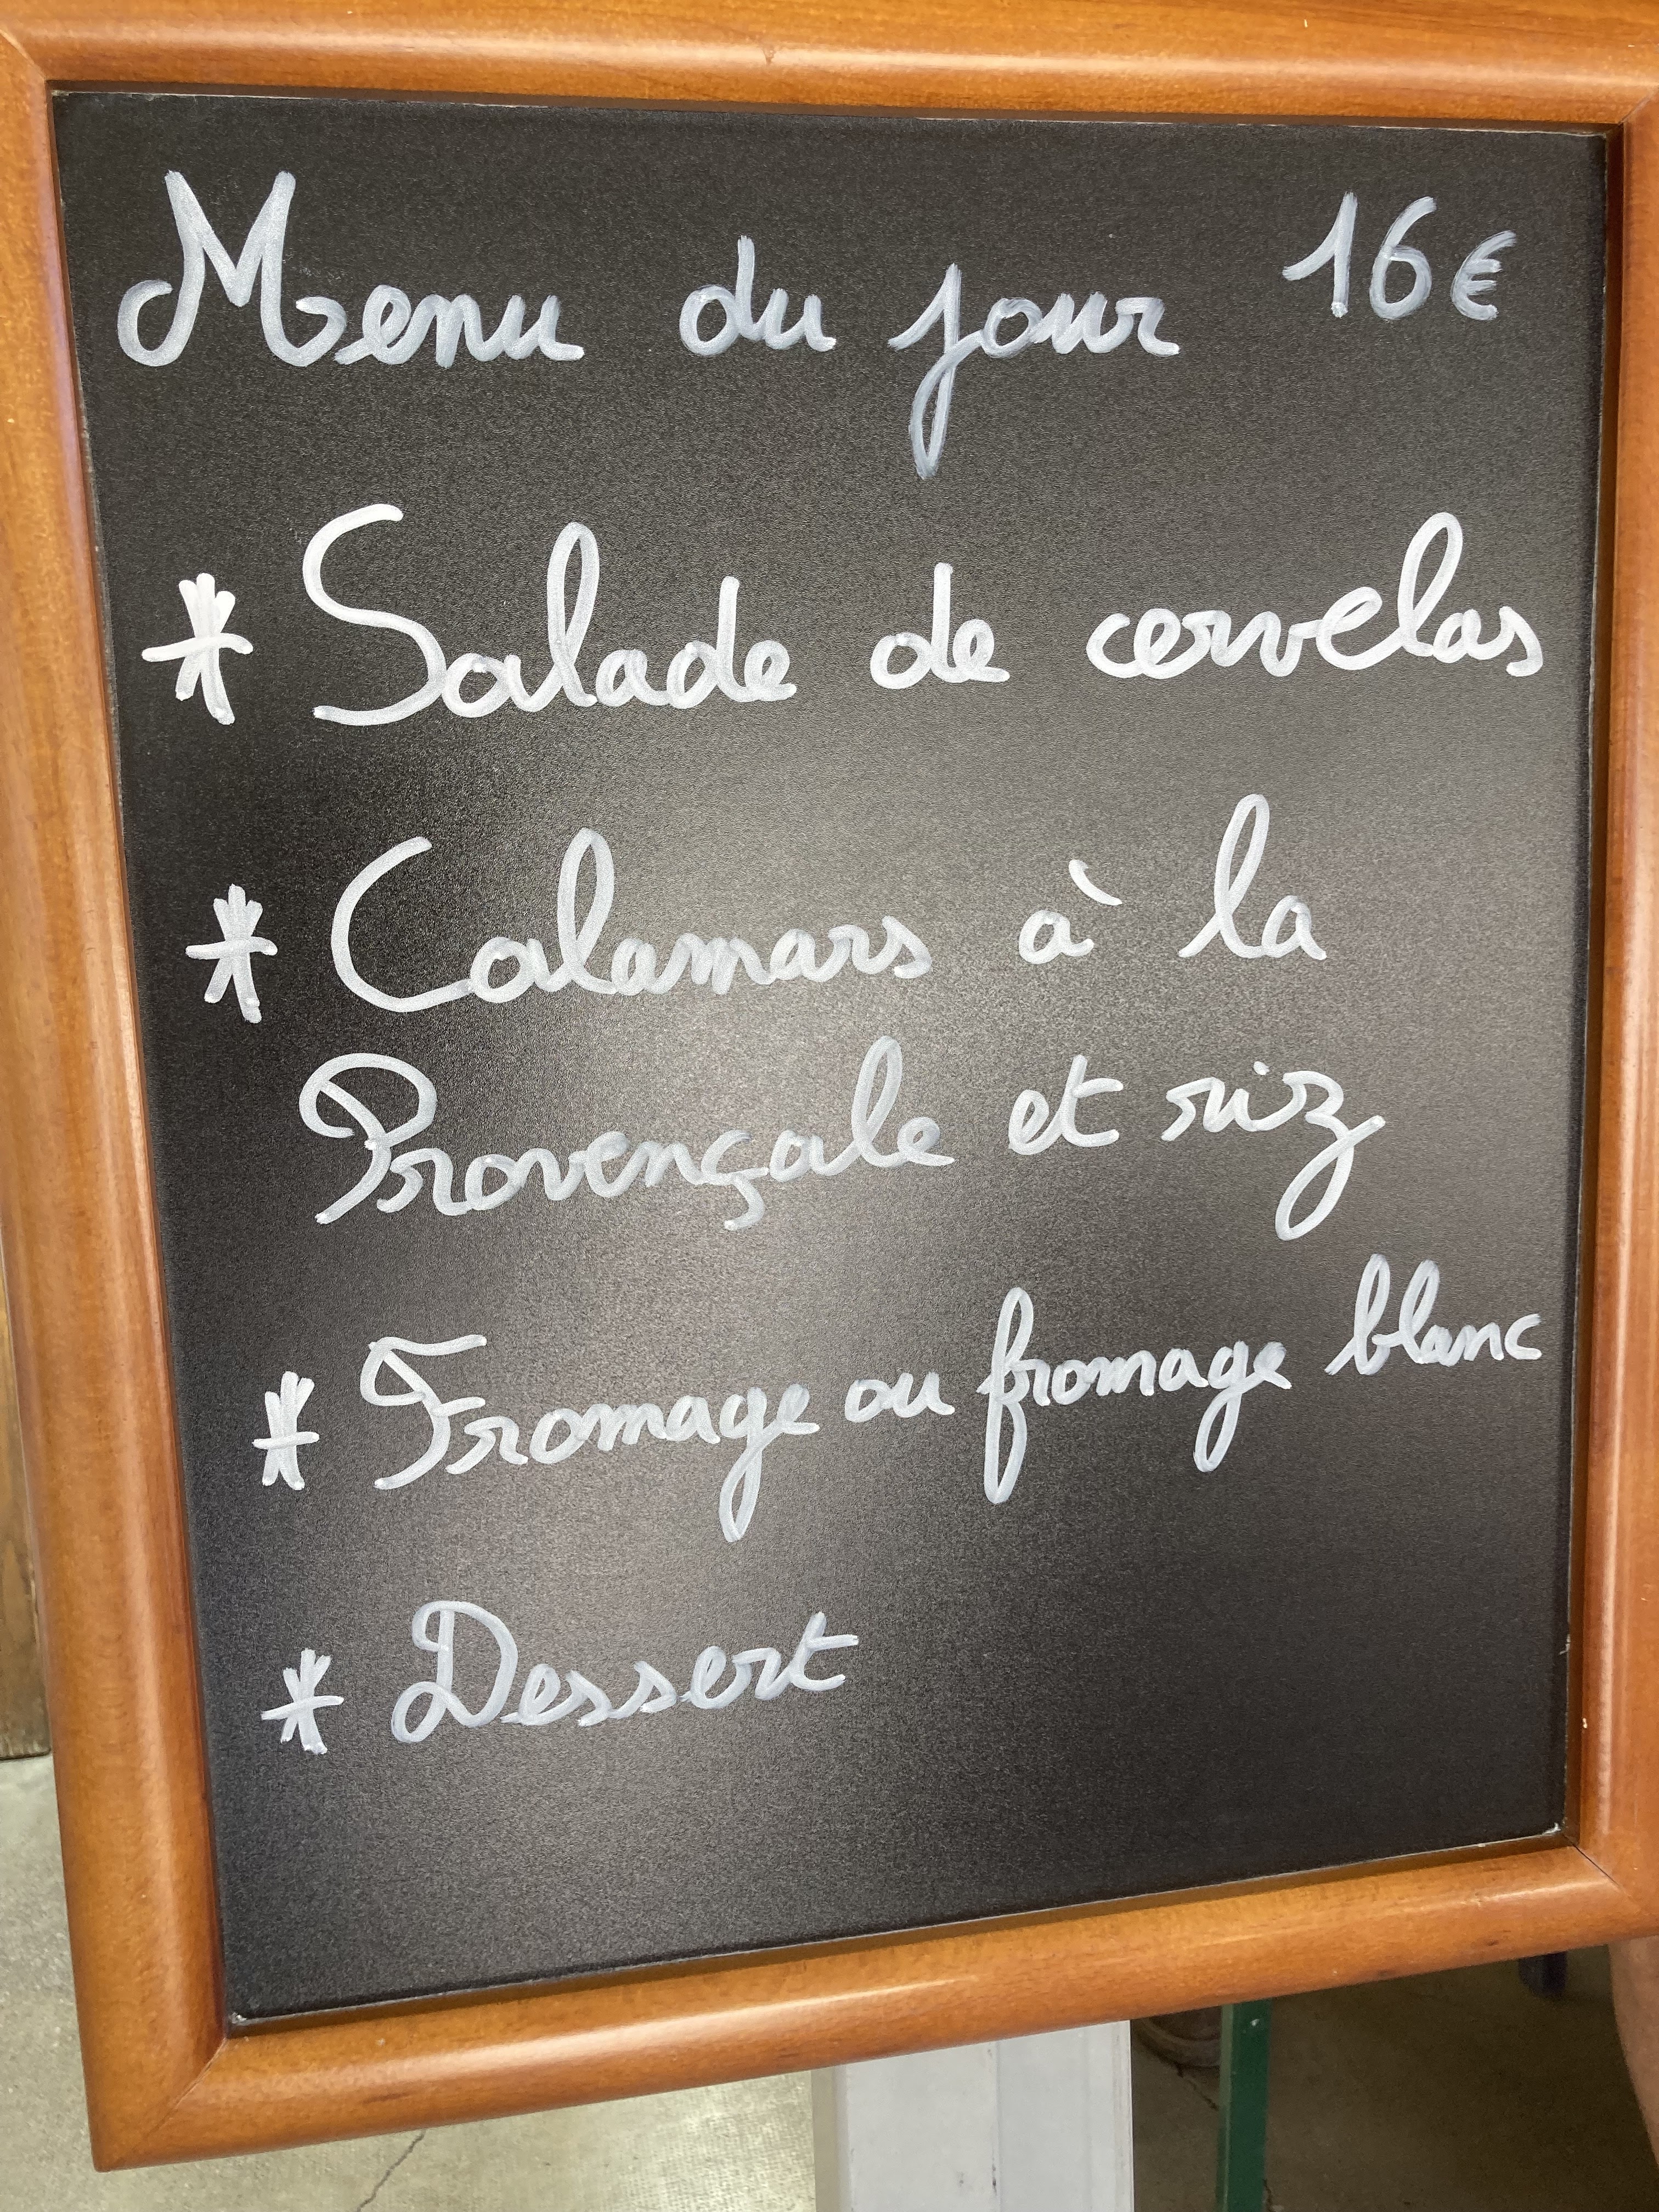 Menu du jour 16€
* Salade de cervelas
* Calamars à la
Provençale et riz
* Fromage ou fromage blanc
* Dessert